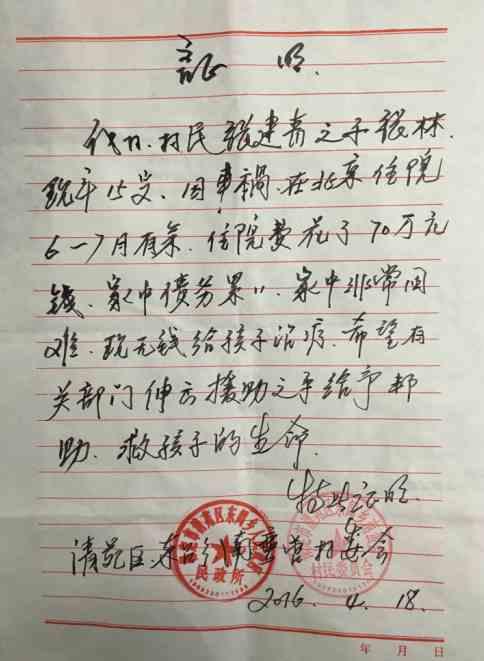 証 明.
代月.村民張建青之子張林.
现年15岁、因車祸.在北京住院
6-7月有余.住院费花了70万元
钱、家中债务累〃.家中非常困
难.现无钱给孩子治疗.希望有
关部门伸出援助之手给予邦
助.救孩子的生命.
特此证明.
清苑区.东吕乡南 营村委会
民政所
村民委员会
2016. 4. 18.
年 月 日